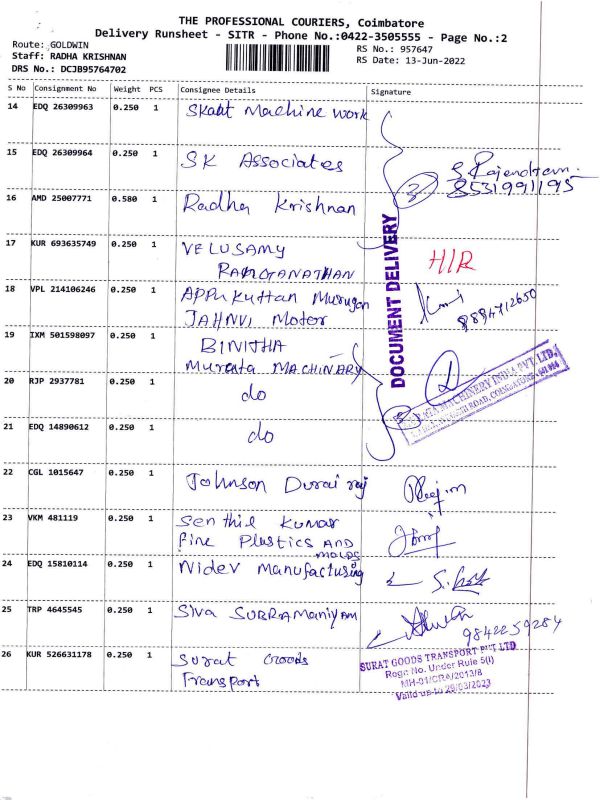 THE PROFESSIONAL COURIERS, Coimbatore
Delivery Runsheet - SITR - Phone No.:0422-3505555 - Page No.:2
Route: GOLDWIN
Staff: RADHA KRISHNAN
DRS No.: DCJB95764702
RS No.: 957647
RS Date: 13-Jun-2022
S No Consignment No Weight PCS Consignee Details Signature
14 EDQ 26309963 0.250 1 Machine work
15 EDQ 26309964 0.250 1 SK Associates
S. Rajendran
8531991195
16 AMD 25007771 0.580 1 Radha Krishnan
3
DOCUMENT DELIVERY
17 KUR 693635749 0.250 1 VELUSAMY
RANGANATHAN
H/R
18 VPL 214106246 0.250 1 APPukuttan Murugan
JAHNVI Motor
8894712650
19 IXM 501598097 0.250 1 BINITHA
Murata MACHINARY
20 RJP 2937781 0.250 1 do
MACHINERY INDIA PVT LTD,
ROAD, COIMBATORE
3
21 EDQ 14890612 0.250 1 do
22 CGL 1015647 0.250 1 Johnson Durai raj
23 VKM 481119 0.250 1 Senthil Kumar
fine Plastics AND
MOLDS
24 EDQ 15810114 0.250 1 Nidev manufacturing
25 TRP 4645545 0.250 1 Siva SUBRAMANIYAM
9842259284
26 KUR 526631178 0.250 1 Surat Goods
Transport
SURAT GOODS TRANSPORT PVT LTD
Regn No. Under Rule 5(i)
MH-01/CRA/2013/8
Valid up to 26/03/2023